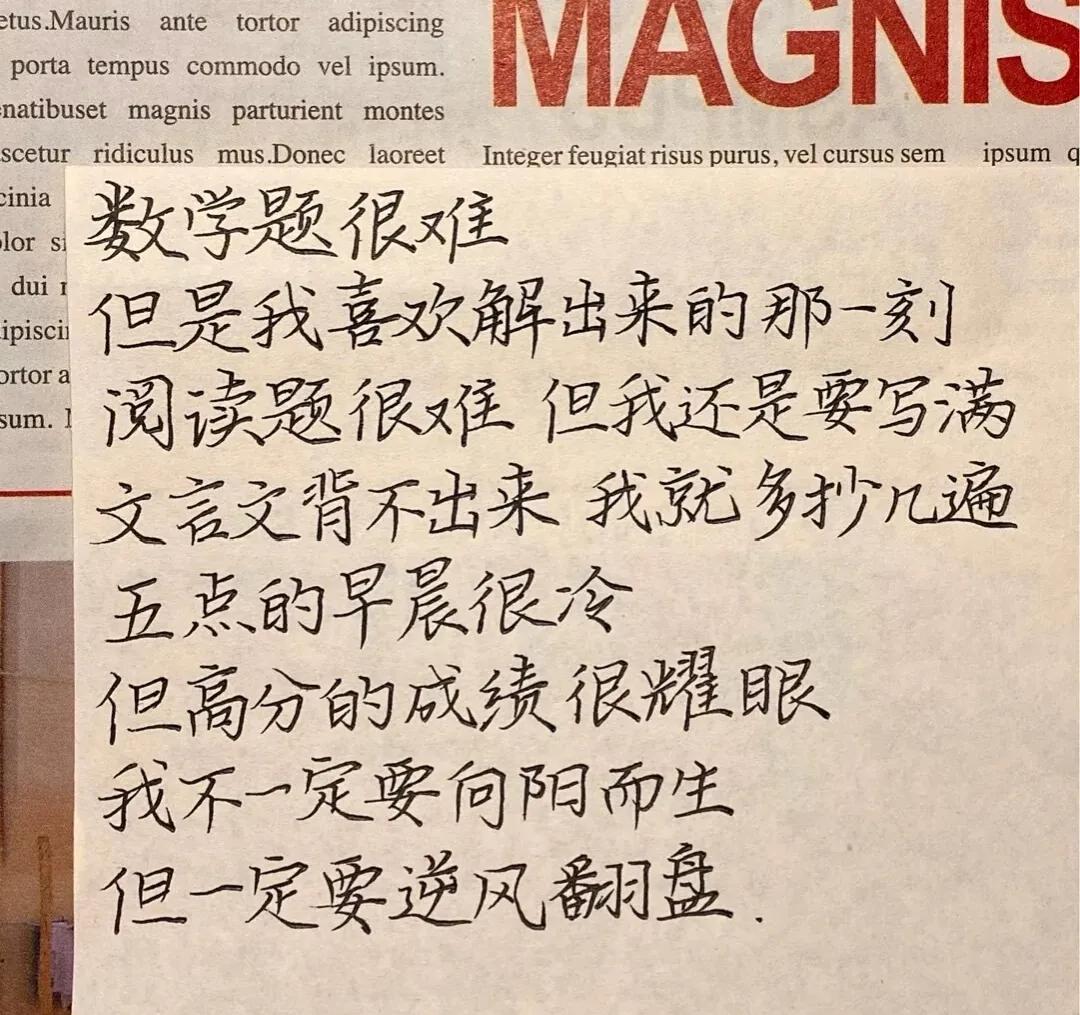 etus.Mauris ante tortor adipiscing
porta tempus commodo vel ipsum.
enatibuset magnis parturient montes
scetur ridiculus mus.Donec laoreet
cinia
olor
dui
ortor a
sum.
MAGNIS
Integer feugiat risus purus, vel cursus sem ipsum q
数学题很难
但是我喜欢解出来的那一刻
阅读题很难 但我还是要写满
文言文背不出来 我就多抄几遍
五点的早晨很冷
但高分的成绩很耀眼
我不一定要向阳而生
但一定要逆风翻盘.